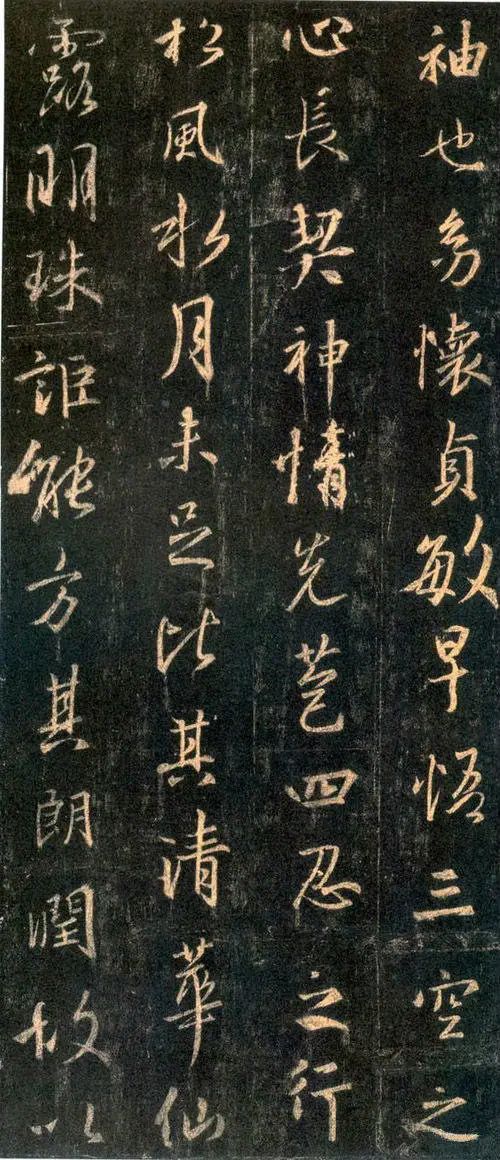 袖也幼懷貞敏早悟三空之
心長契神情先苞四忍之行
松風水月未足比其清華仙
露明珠詎能方其朗潤故以